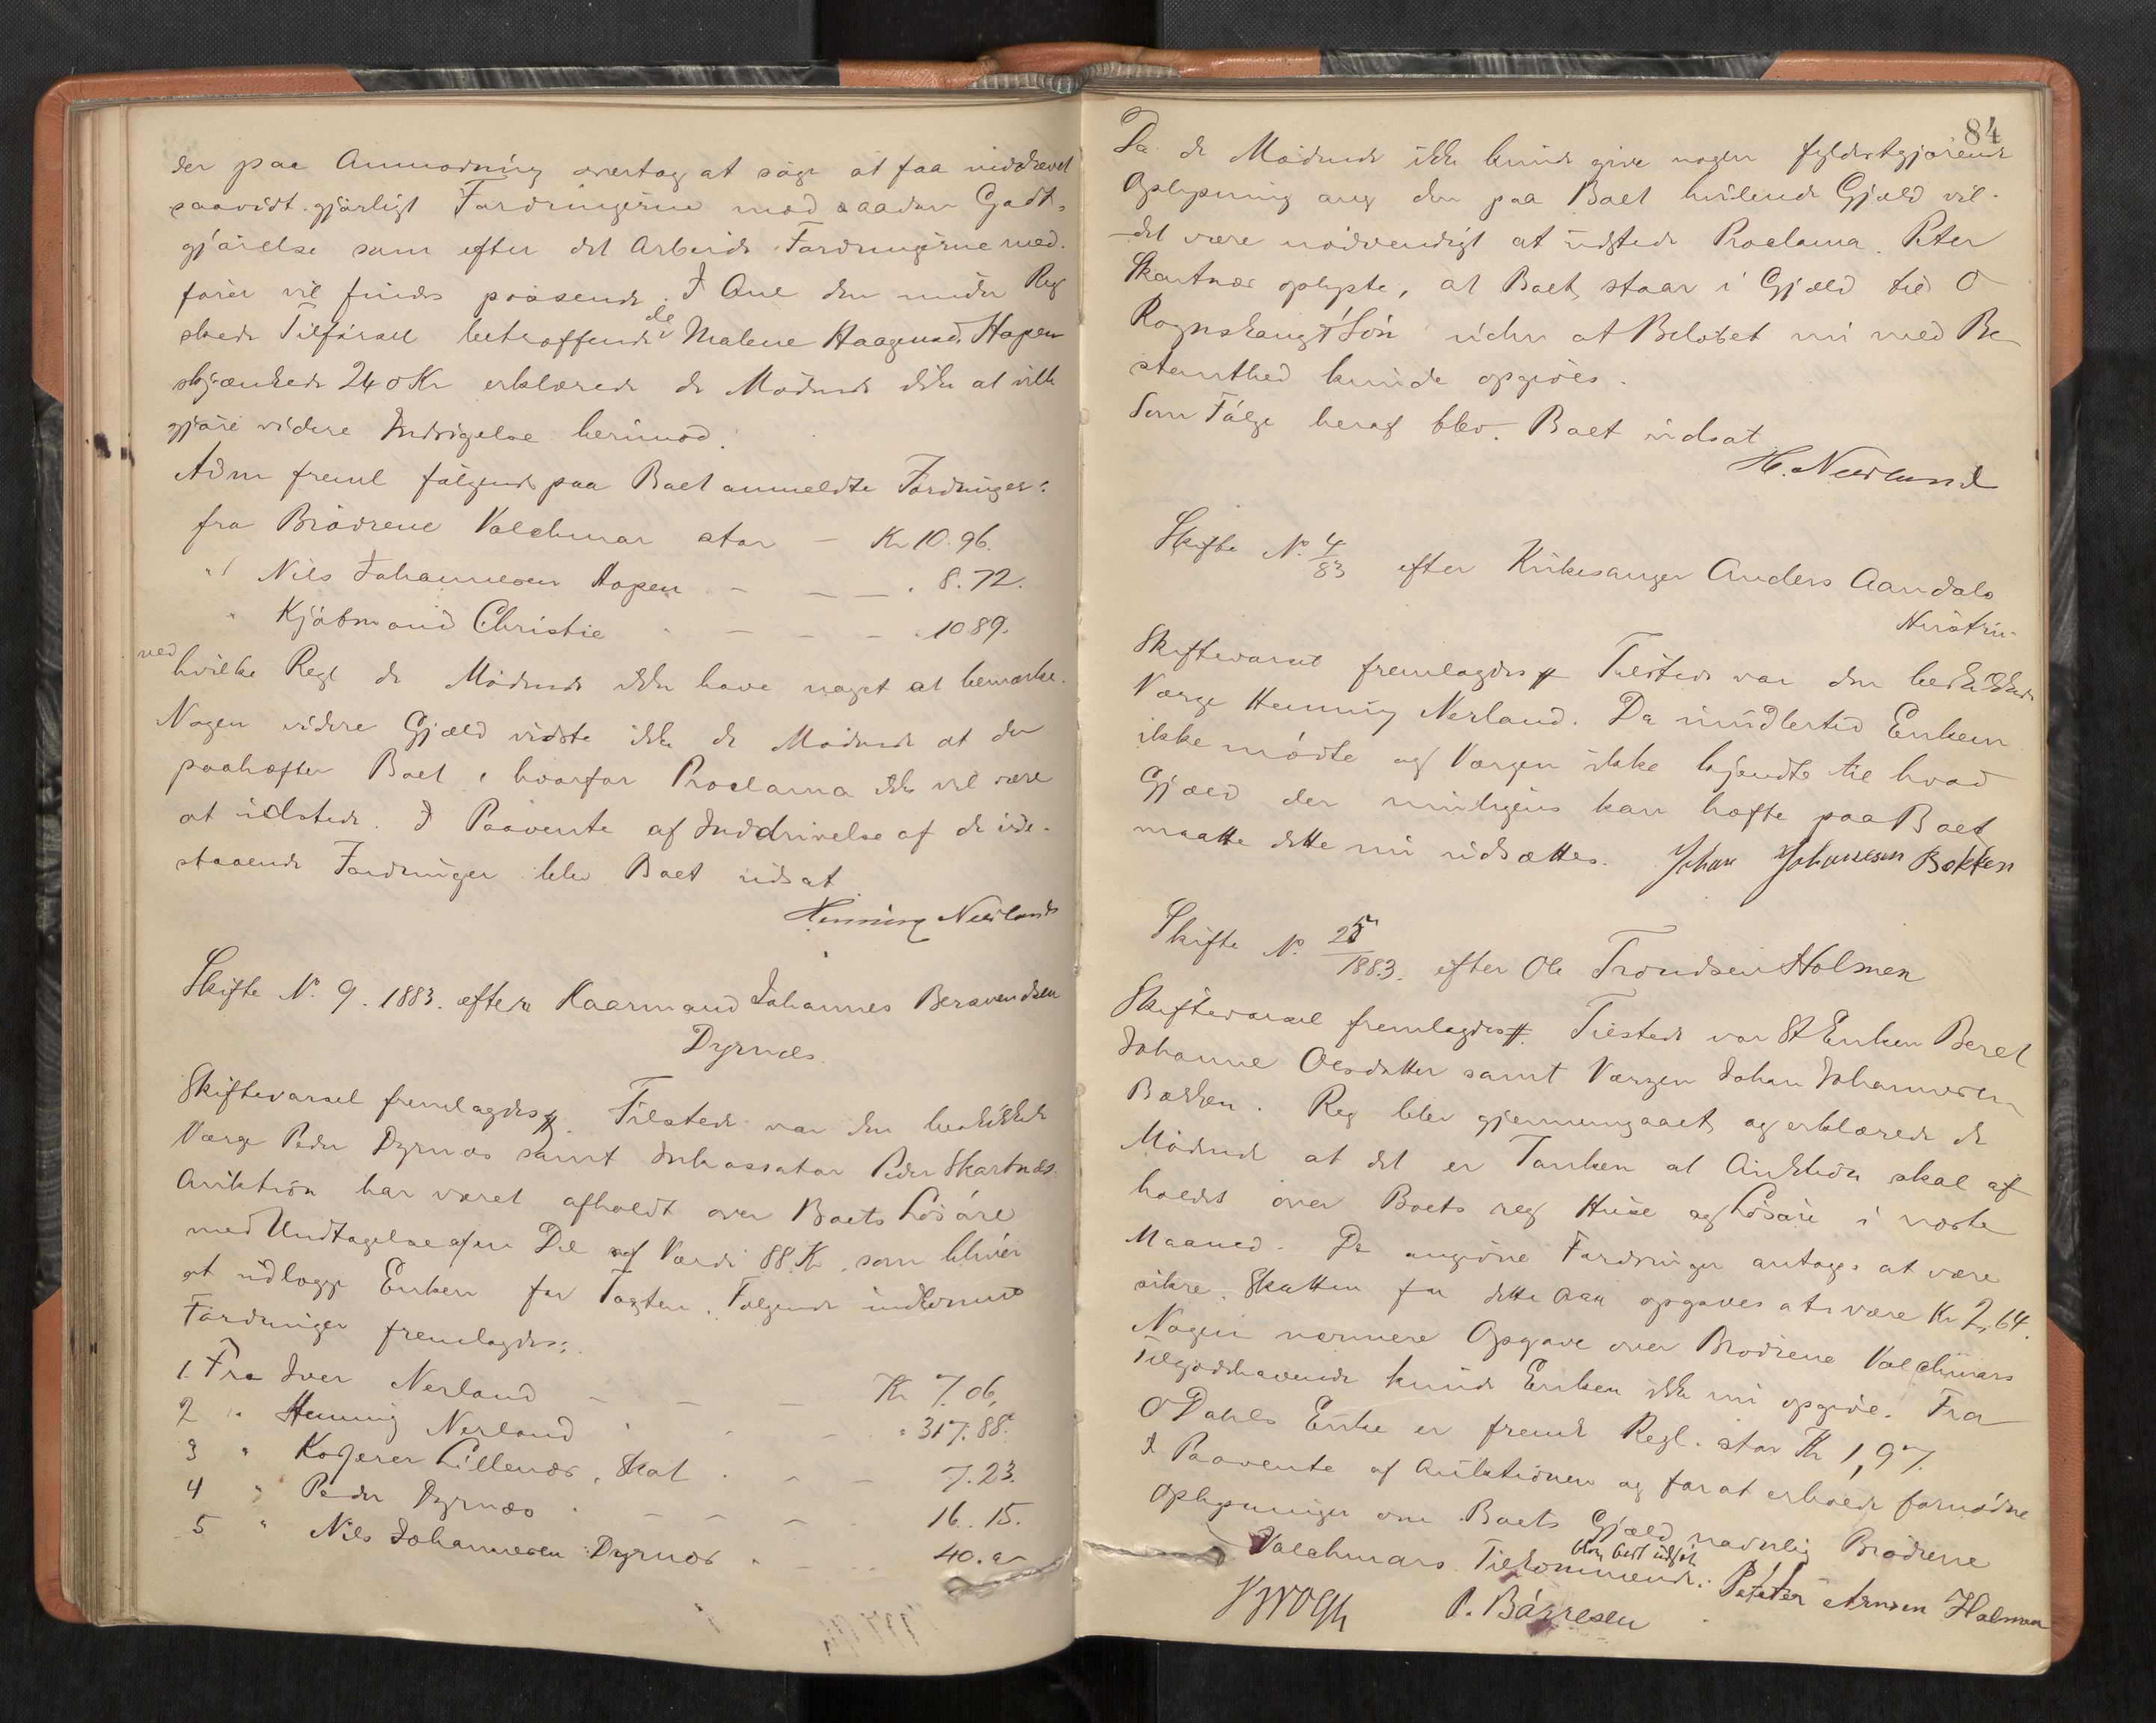 der paa Anmodning overtog at søge at faa inddrevet
saavidt gjørligt Fordringerne mod saadan Godt-
gjørelse som efter det Arbeide Fordringerne med-
fører vil findes passende. I Anl den under Reg
skede Tilførsel betræffende de Malene Haagensd. Hopen
skjænkede 240 Kr erklærede de Mødende ikke at ville
gjøre videre Indsigelse herimod.
Adm freml følgende paa Boet anmeldte Fordringer:
fra Brødrene Volckmar stor — Kr 10.96.
" Nils Johannesen Hopen - — — . 8.72.
" Kjøbmand Christie - — - — . 10 89.
ved hvilke Regl de Mødende ikke have noget at bemærke.
Nogen videre Gjæld vidste ikke de Mødende at der
paahæfter Boet, hvorfor Proclama ikke vil være
at udstede. I Paavente af Inddrivelse af de ude-
staaende Fordringer blev Boet udsat
Henning Neerland
Skifte No. 9. 1883. efter Kaarmand Johannes Bersvendsen
Dyrnæs.
Skiftevarsel fremlagdes #. Tilstede var den beskikkede
Værge Peder Dyrnæs samt Inkassator Peder Skartnæs.
Auktion har været afholdt over Boets Løsøre
med Undtagelse af en Del af Værdi 88 Kr. som bliver
at udlægge Enken for Taxten. Følgende indkomne
Fordringer fremlagdes:
1. Fra Iver Nerland — — — Kr 7.06,
2 " Henning Nerland - - - " 317.88.
3 " Kasserer Lillenæs, Skat . - — 7.23.
4 " Peder Dyrnæs . — — - 16.15.
5 " Nils Johannesen Dyrnæs . - — 40. "
84
Da de Mødende ikke kunde give nogen fyldestgjørende
Oplysning ang den paa Boet hvilende Gjæld vil
det være nødvendigt at udstede Proclama. Peter
Skartnæs oplyste, at Boet staar i Gjæld til O
Rognskaugs Søn uden at Beløbet nu med Be-
stemthed kunde opgives.
Som Følge heraf blev Boet udsat
H. Neerland
Skifte No. 4/83 efter Kirkesanger Anders Aandals
Hustru.
Skiftevarsel fremlagdes # Tilstede var den beskikkede
Værge Henning Nerland. Da imidlertid Enken
ikke mødte og Værgen ikke kjendte til hvad
Gjæld der muligens kan hæfte paa Boet
maatte dette nu udsættes. Johan Johanesen Bakken
Skifte No. 25/1883. efter Ole Trondsen Holmen
Skiftevarsel fremlagdes #. Tilstede var Enken Beret
Johanne Olesdatter samt Værgen Johan Johannesen
Bakken. Reg blev gjennemgaaet og erklærede de
Mødende at det er Tanken at Auktion skal af-
holdes over Boets reg Huse og Løsøre i næste
Maaned. De angivne Fordringer antages at være
sikre. Skatten for dette Aar opgaves at være Kr 2,64.
Nogen nærmere Opgave over Brødrene Volckmars
Tilgodehavende kunde Enken ikke nu opgive. Fra
O Dahls Enke er fremk Regl. stor Kr 1,97.
I Paavente af Auktionen og for at erholde fornødne
Oplysninger om Boets Gjæld navnlig Brødrene
Volckmars Tilkommende. blev boet udsat
Petter Arnsen Holmen
P. Børresen